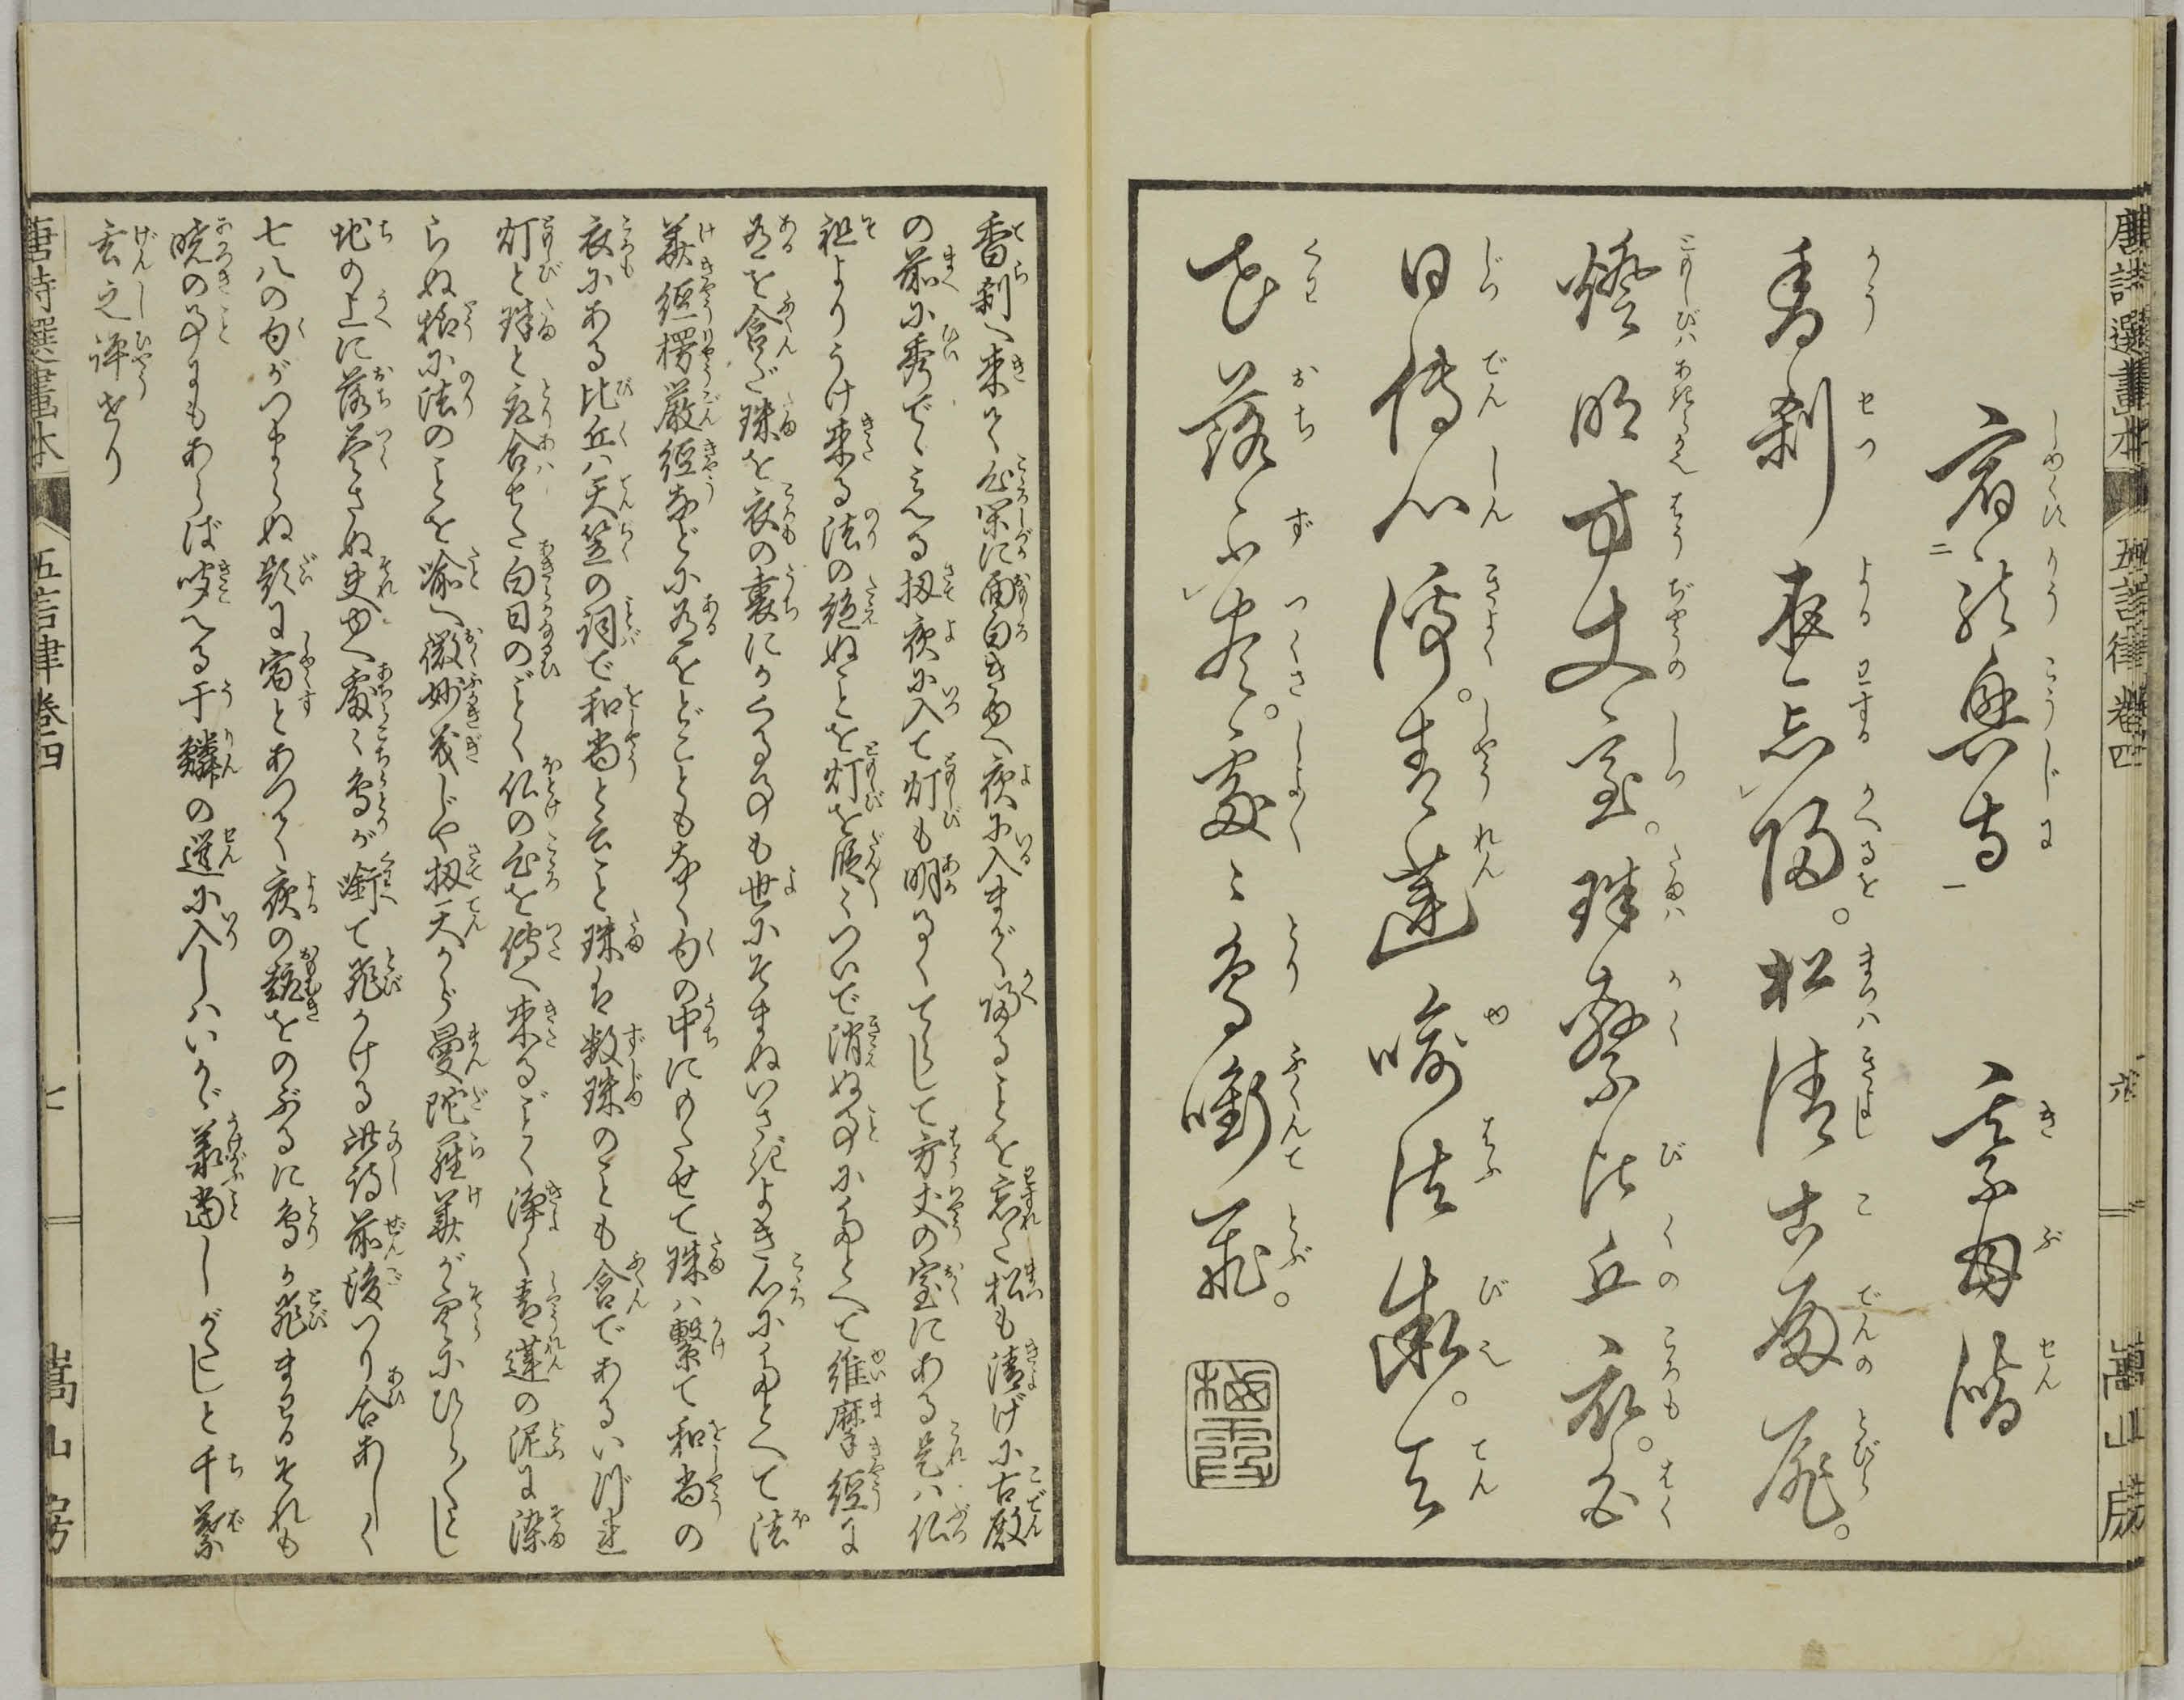 唐詩選畫本 五言律 卷四 六 嵩山房
宿龍興寺 綦毋潛
香刹夜忘歸。松清古殿扉。
燈明方丈室。珠繫比丘衣。白
日傳心淨。青蓮喻法微。天
花落不盡。處〻鳥銜飛。
香刹へ来て心栄に面白きゆへ夜に入まがく帰ることを忘た松も清げに古殿
の前に秀でゝみへる扨夜に入て灯も明るくてらして方丈の室にある是ハ仏
祖よりうけ来る法の絶ぬことを灯を段〻ついで消ぬ事にたとへて維摩経に
有を含だ珠を衣の裏にかくる事も世にそまぬいさぎよき心にたとへて法
華経楞厳経などに有をどこともなく句の中にのせて珠ハ繫て和尚の
衣にある比丘ハ天竺の詞で和尚と云こと珠は数珠のことも含である
灯と珠と取合せた白日のごとく仏の心を傳へ来るごとく浄く青蓮の泥に染
らぬ様に法のことを喩へ微妙義じや扨天から曼陀羅華が空にひらくし
地の上に落尽さぬ夫ゆへ處〻鳥が銜て飛かける此詩前後つり合あしく
七八の句がつまらぬ題に宿とあつて夜の趣をのぶるに鳥の飛まわるそれも
暁の事にもあらば聞へる于鱗の選に入しハいかゞ義当しがたしと千葉
玄之評せり
唐詩選畫本 五言律 卷四 七 嵩山房